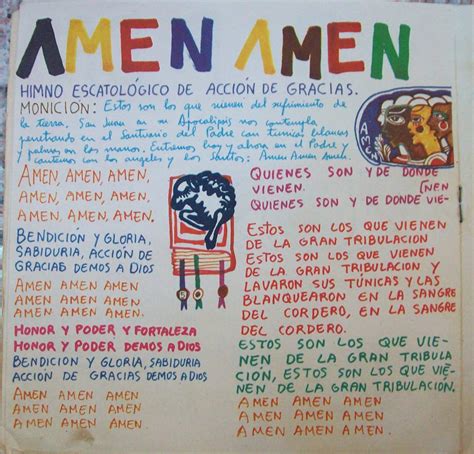 AMEN AMEN
HIMNO ESCATOLÓGICO DE ACCIÓN DE GRACIAS.
MONICIÓN: Estos son los que vienen del sufrimiento de
la tierra. San Juan en su Apocalipsis nos contempla
penetrando en el Santuario del Padre con túnicas blancas
y palmas en las manos. Entremos hoy y ahora en el Padre y
cantemos con los angeles y los santos: Amen Amen Amen.
AMEN
AMEN, AMEN, AMEN,
AMEN, AMEN, AMEN,
AMEN, AMEN, AMEN.
BENDICIÓN Y GLORIA,
SABIDURIA, ACCIÓN DE
GRACIAS DEMOS A DIOS
AMEN AMEN AMEN
AMEN AMEN AMEN
AMEN AMEN AMEN.
HONOR Y PODER Y FORTALEZA
HONOR Y PODER DEMOS A DIOS
BENDICION Y GLORIA, SABIDURIA
ACCIÓN DE GRACIAS DEMOS A DIOS
AMEN AMEN AMEN
AMEN AMEN AMEN
AMEN AMEN AMEN
QUIENES SON Y DE DONDE
VIENEN.
QUIENES SON Y DE DONDE VIE-
NEN
ESTOS SON LOS QUE VIENEN
DE LA GRAN TRIBULACION
ESTOS SON LOS QUE VIENEN
DE LA GRAN TRIBULACION Y
LAVARON SUS TÚNICAS Y LAS
BLANQUEARON EN LA SANGRE
DEL CORDERO, EN LA SANGRE
DEL CORDERO.
ESTOS SON LOS QUE VIE-
NEN DE LA GRAN TRIBULA
CIÓN, ESTOS SON LOS QUE VIE-
NEN DE LA GRAN TRIBULACIÓN.
AMEN AMEN AMEN
AMEN AMEN AMEN
AMEN AMEN AMEN